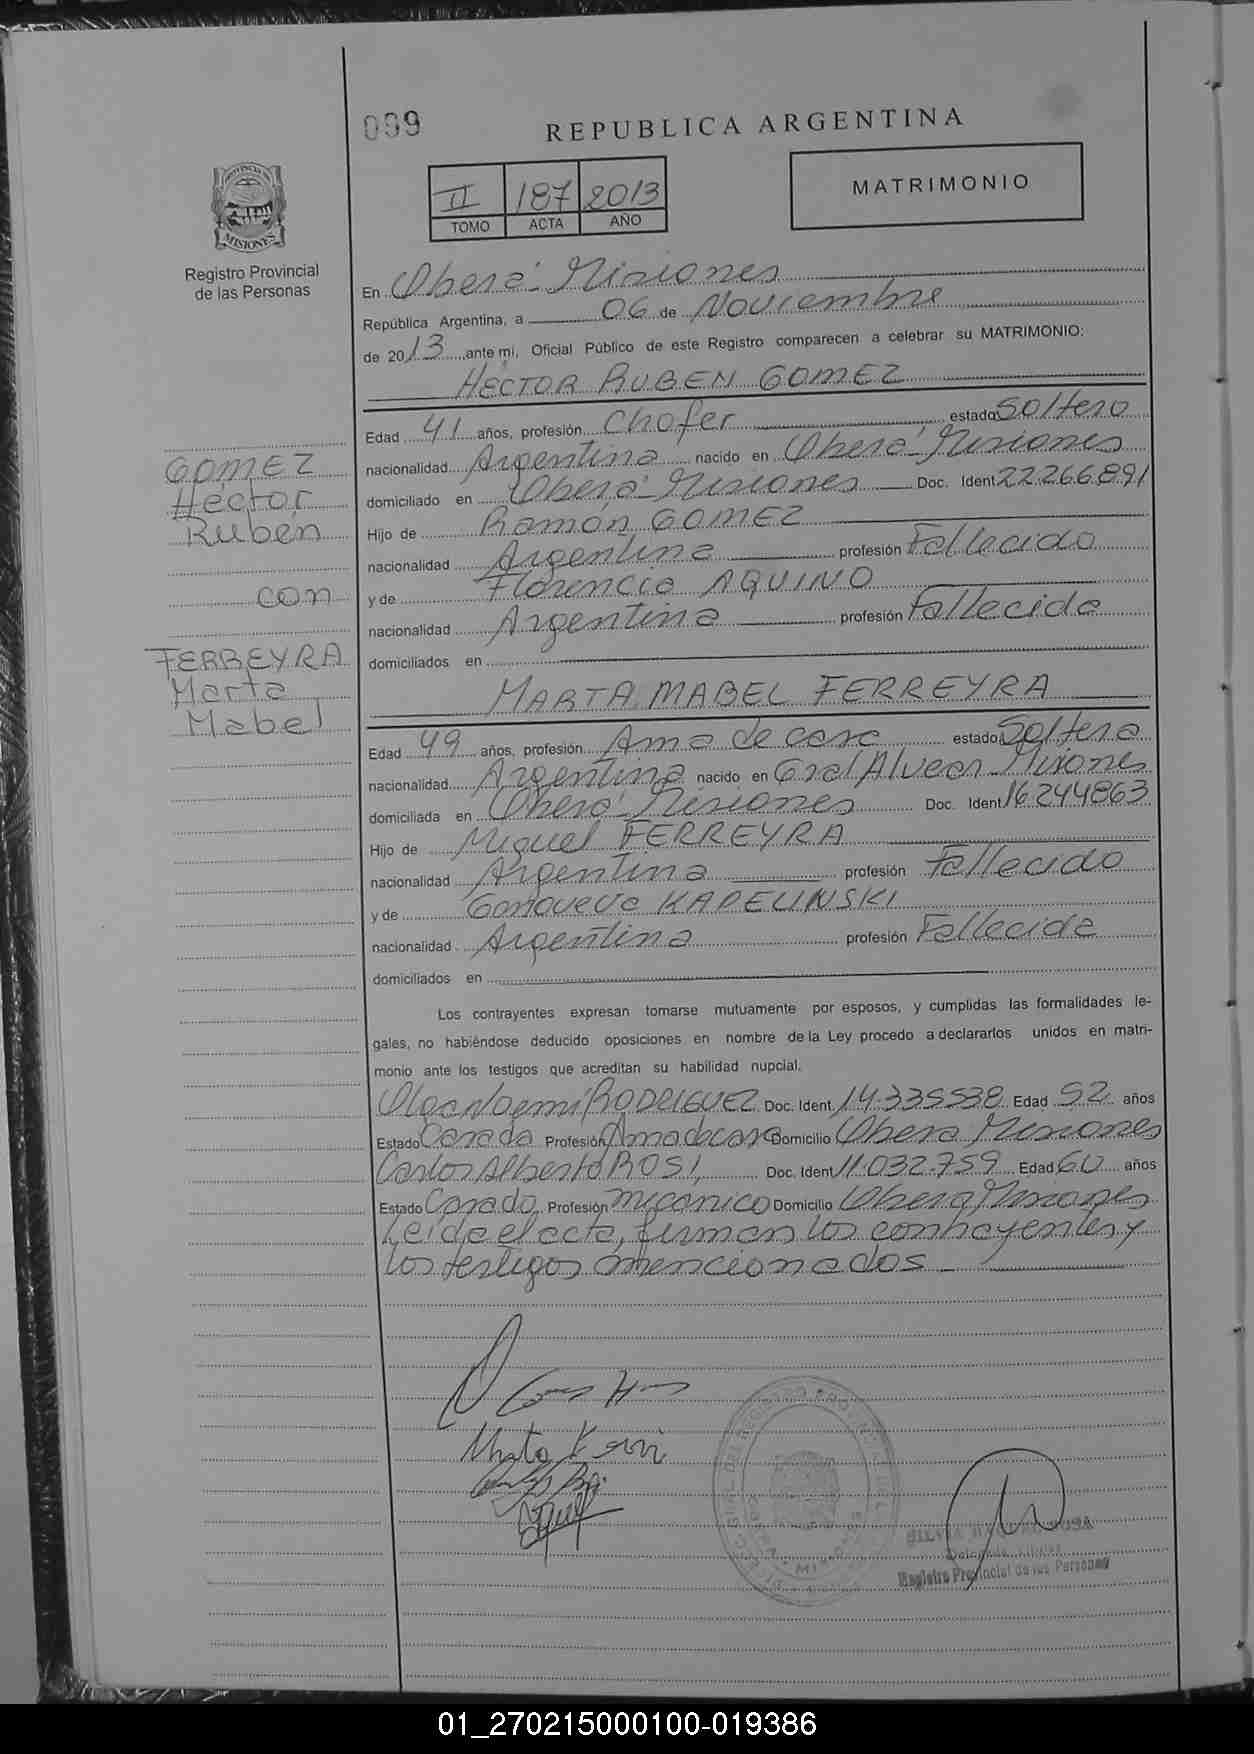 099
REPUBLICA ARGENTINA
II 187 2013
TOMO ACTA AÑO
MATRIMONIO
PROVINCIA DE
MISIONES
Registro Provincial
de las Personas
En Oberá - Misiones
República Argentina, a 06 de Noviembre
de 2013 ,ante mi, Oficial Público de este Registro comparecen a celebrar su MATRIMONIO:
HÉCTOR RUBEN GOMEZ
Edad 41 años, profesión Chofer estado Soltero
nacionalidad Argentina nacido en Oberá - Misiones
domiciliado en Oberá - Misiones Doc. Ident 22.266.891
Hijo de Ramón GOMEZ
nacionalidad Argentina profesión Fallecido
y de Florencia AQUINO
nacionalidad Argentina profesión Fallecida
domiciliados en
GOMEZ
Hector
Ruben
con
FERREYRA
Marta
Mabel
MARTA MABEL FERREYRA
Edad 49 años, profesión Ama de casa estado Soltera
nacionalidad Argentina nacido en Gral Alvear - Misiones
domiciliada en Oberá - Misiones Doc. Ident 16.244.863
Hijo de Miguel FERREYRA
nacionalidad Argentina profesión Fallecido
y de Genoveva KAPELINSKI
nacionalidad Argentina profesión Fallecida
domiciliados en
Los contrayentes expresan tomarse mutuamente por esposos, y cumplidas las formalidades le-
gales, no habiéndose deducido oposiciones en nombre de la Ley procedo a declararlos unidos en matri-
monio ante los testigos que acreditan su habilidad nupcial.
Olga Noemí RODRIGUEZ Doc. Ident. 14.335538 Edad 52 años
Estado Casada Profesión Ama de casa Domicilio Oberá Misiones
Carlos Alberto ROSI, Doc. Ident 11.032.759 Edad 60 años
Estado Casado Profesión mecánico Domicilio Oberá Misiones
Leída el acta, firman los contrayentes y
los testigos mencionados
Registro Provincial de las Personas
01_270215000100-019386